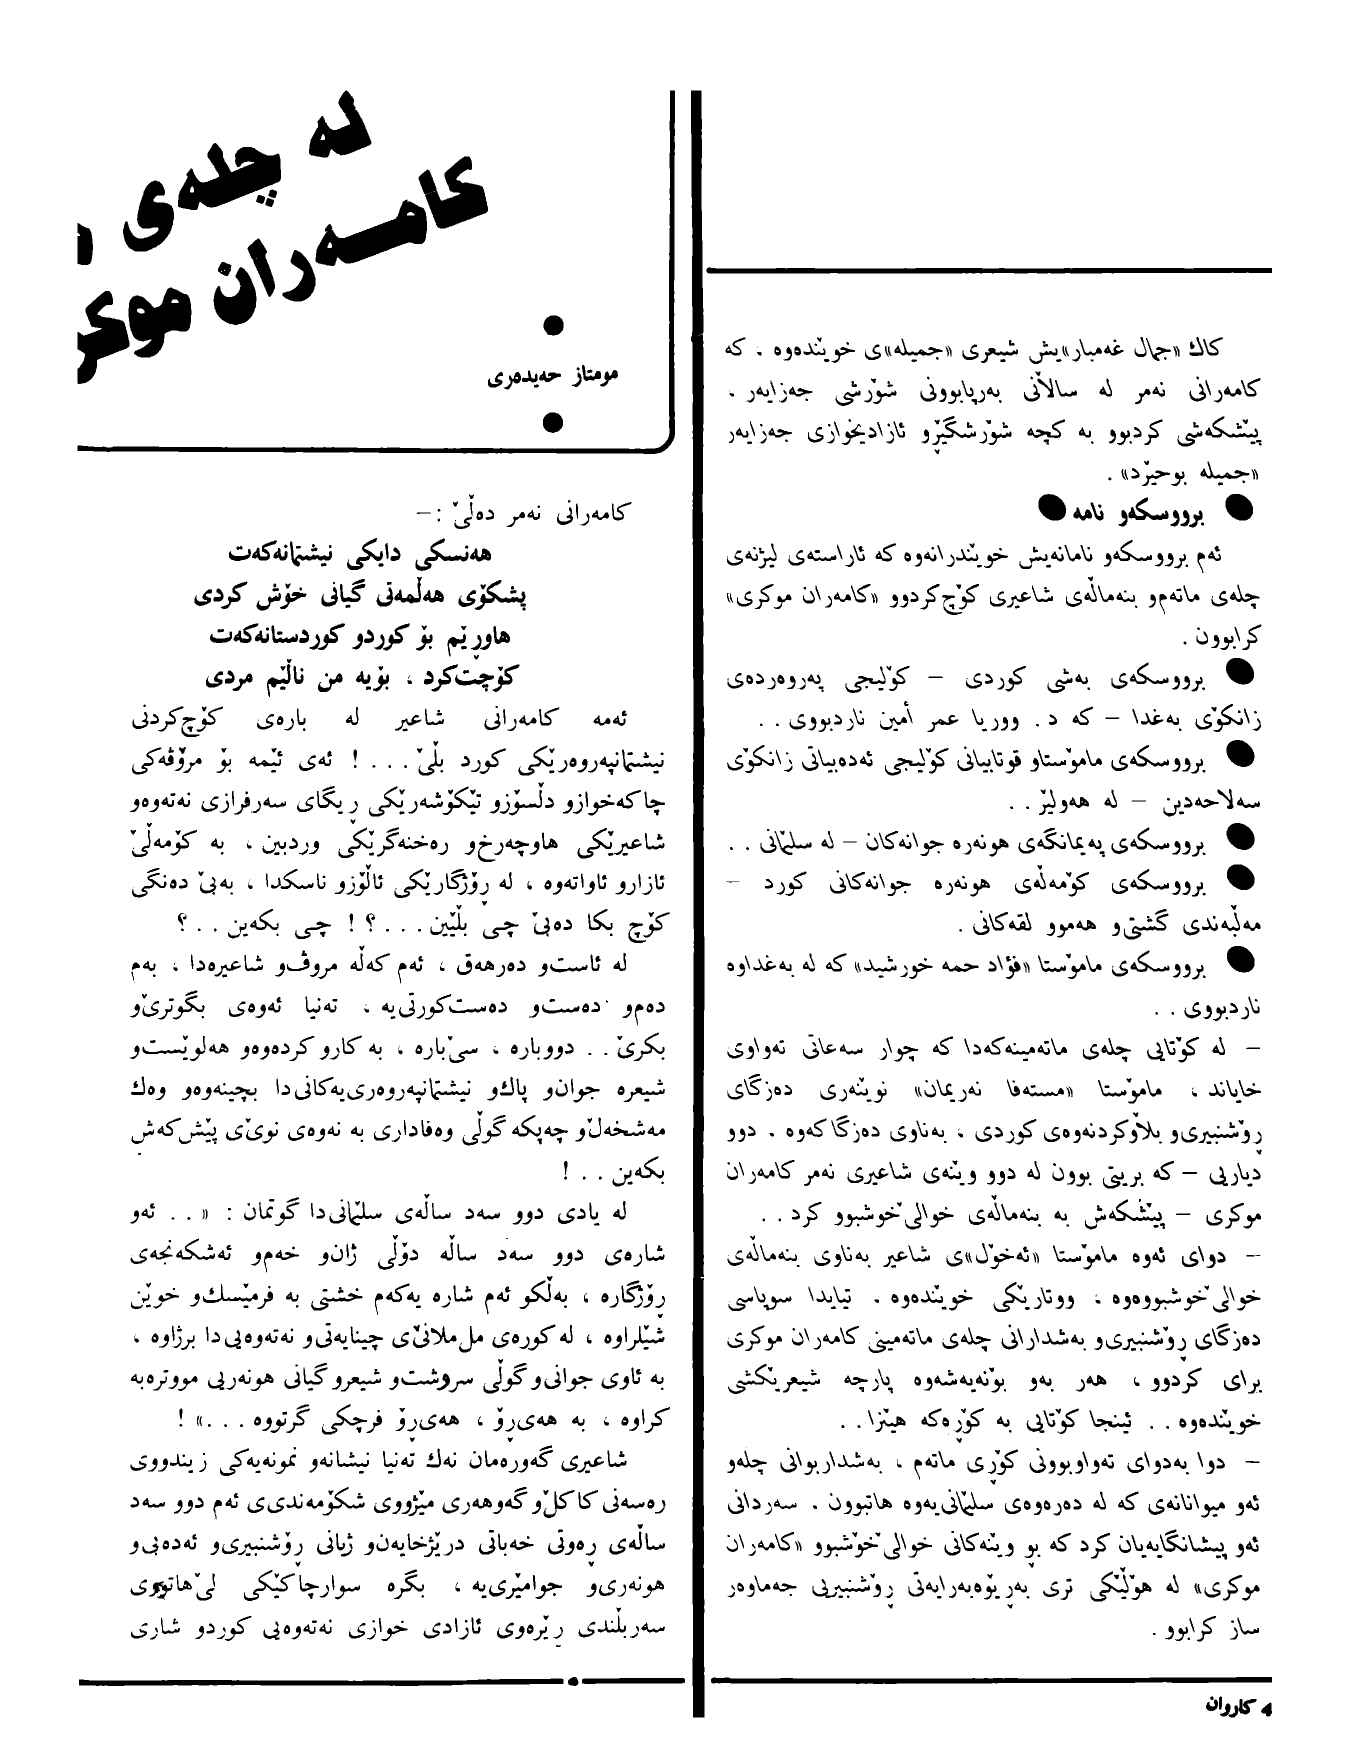 كاك «جمال غەمبار»یش شیعری «جمیلە»ی خوێندەوە ، كە
كامەرانی نەمر لە ساڵانی بەرپابوونی شۆرشی جەزایەر ،
پێشكەشی كردبوو بە كچە شۆرشگێڕو ئازادیخوازی جەزایەر
«جمیلە بوحیرد» .
● برووسكەو نامە ●
ئەم برووسكەو نامانەیش خوێندرانەوە كە ئاراستەی لیژنەی
چلەی ماتەم‌و بنەماڵەی شاعیری كۆچ‌كردوو «كامەران موكری»
كرابوون .
● برووسكەی بەشی كوردی – كۆلیجی پەروەردەی
زانكۆی بەغدا – كە د. ووریا عمر أمین ناردبووی . .
● برووسكەی مامۆستاو قوتابیانی كۆلیجی ئەدەبیاتی زانكۆی
سەلاحەدین – لە هەولێر . .
● برووسكەی پەیمانگەی هونەرە جوانەكان – لە سلێمانی . .
● برووسكەی كۆمەڵەی هونەرە جوانەكانی كورد –
مەڵبەندی گشتی‌و هەموو لقەكانی .
● برووسكەی مامۆستا «فؤاد حمە خورشید» كە لە بەغداوە
ناردبووی . .
– لە كۆتایی چلەی ماتەمینەكەدا كە چوار سەعاتی تەواوی
خایاند ، مامۆستا «مستەفا نەریمان» نوێنەری دەزگای
ڕۆشنبیری‌و بڵاوكردنەوەی كوردی ، بەناوی دەزگاكەوە . دوو
دیاریی – كە بریتی بوون لە دوو وێنەی شاعیری نەمر كامەران
موكری – پێشكەش بە بنەماڵەی خوالێ‌خۆشبوو كرد . .
– دوای ئەوە مامۆستا «ئەخۆل»ی شاعیر بەناوی بنەماڵەی
خوالێ‌خۆشبووەوە ، ووتاریكی خوێندەوە . تیایدا سوپاسی
دەزگای ڕۆشنبیری‌و بەشدارانی چلەی ماتەمینی كامەران موكری
برای كردوو ، هەر بەو بۆنەیەشەوە پارچە شیعریكشی
خوێندەوە . . ئینجا كۆتایی بە كۆڕەكە هێنرا . .
– دوا بەدوای تەواوبوونی كۆڕی ماتەم ، بەشداربوانی چلەو
ئەو میوانانەی كە لە دەرەوەی سلێمانی‌یەوە هاتبوون . سەردانی
ئەو پیشانگایەیان كرد كە بۆ وێنەكانی خوالێ‌خۆشبوو «كامەران
موكری» لە هۆڵێكی تری بەڕێوەبەرایەتی ڕۆشنبیریی جەماوەر
ساز كرابوو .
لە چلەی م
كامەران موكر
●
مومتاز حەیدەری
●
كامەرانی نەمر دەڵێ : –
هەنسكی دایكی نیشتمانەكەت
پشكۆی هەڵمەتی گیانی خۆش كردی
هاوڕێم بۆ كوردو كوردستانەكەت
كۆچت‌كرد ، بۆیە من ناڵێم مردی
ئەمە كامەرانی شاعیر لە بارەی كۆچ‌كردنی
نیشتمانپەروەرێكی كورد بڵێ . . . ! ئەی ئێمە بۆ مرۆڤەكی
چاكەخوازو دلسۆزو تێكۆشەرێكی ڕیگای سەرفرازی نەتەوەو
شاعیرێكی هاوچەرخ‌و رەخنەگرێكی وردبین ، بە كۆمەڵێ
ئازارو ئاواتەوە ، لە ڕۆژگارێكی ئاڵۆزو ناسكدا ، بەبێ دەنگی
كۆچ بكا دەبێ چی بڵێین . . . ؟ ! چی بكەین . . ؟
لە ئاست‌و دەرهەق ، ئەم كەڵە مروڤ‌و شاعیرەدا ، بەم
دەم‌و دەست‌و دەست‌كورتی‌یە ، تەنیا ئەوەی بگوترێ‌و
بكرێ . . دووبارە ، سێ‌بارە ، بە كارو كردەوەو هەلوێست‌و
شیعرە جوان‌و پاك‌و نیشتمانپەروەری‌یەكانی‌دا بچینەوەو وەك
مەشخەڵ‌و چەپكە گوڵی وەفاداری بە نەوەی نوێ‌ی پێش‌كەش
بكەین . . !
لە یادی دوو سەد ساڵەی سلێمانی‌دا گوتمان : « . . ئەو
شارەی دوو سەد ساڵە دۆڵی ژان‌و خەم‌و ئەشكەنجەی
ڕۆژگارە ، بەڵكو ئەم شارە یەكەم خشتی بە فرمێسك‌و خوێن
شێلراوە ، لە كورەی مل‌ملانێ‌ی چینایەتی‌و نەتەوەیی‌دا برژاوە ،
بە ئاوی جوانی‌و گوڵی سروشت‌و شیعرو گیانی هونەریی مووتربە
كراوە ، بە هەی‌ڕۆ ، هەی‌ڕۆ فرچكی گرتووە . . .» !
شاعیری گەورەمان نەك تەنیا نیشانەو نمونەیەكی زیندووی
رەسەنی كاكڵ‌و گەوهەری مێژووی شكۆمەندی‌ی ئەم دوو سەد
ساڵەی ڕەوتی خەباتی درێژخایەن‌و ژیانی ڕۆشنبیری‌و ئەدەبی‌و
هونەری‌و جوامێری‌یە ، بگرە سوارچاكێكی لێ‌هاتووی
سەربڵندی ڕێرەوی ئازادی خوازی نەتەوەیی كوردو شاری
4 كاروان